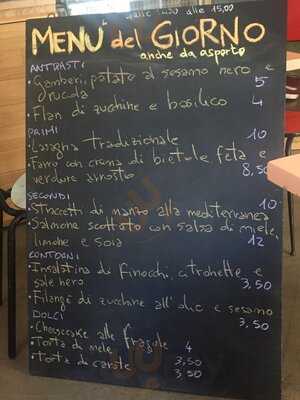 dalle 12,30 alle 15,00
MENU del GIORNO
anche da asporto
ANTIPASTI
• Gamberi, patate al sesamo nero e
rucola 5
• Flan di zucchine e basilico 4
PRIMI
• Lasagna tradizionale 10
• Farro con crema di bietole, feta e
verdure arrosto 8,50
SECONDI
• Straccetti di manzo alla mediterranea 10
• Salmone scottato con salsa di miele,
limone e soia 12
CONTORNI
• Insalatina di finocchi, carote e
sale nero 3,50
• Filangè di zucchine all'olio e sesamo 3,50
DOLCI
• Cheesecake alle fragole 4
• Torta di mele 3,50
• Torta di carote 3,50